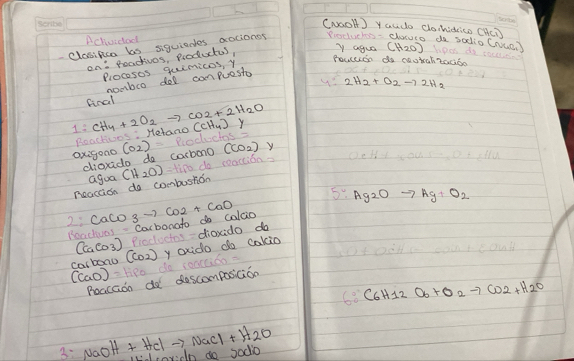 Scribe
Actividad
- Clasifica las siguientes reacciones
en: Reactivos, Productos,
Procesos químicos, y
nombre del compuesto
final
1: CH4 + 2O2 → CO2 + 2H2O
Reactivos: Metano (CH4) y
oxigeno (O2) = Productos =
dioxido de carbono (CO2) y
agua (H2O) = tipo de reacción =
Reacción de combustión
2: CaCO3 → CO2 + CaO
Reactivos = Carbonato de calcio
(CaCO3) Productos = dioxido de
carbono (CO2) y oxido de calcio
(CaO) = tipo de reacción =
Reacción de descomposición
3: NaOH + HCl → NaCl + H2O
de sodio
Scribe
(NaOH) y acido clorhidrico (HCl)
Productos = cloruro de sodio (NaCl)
y agua (H2O) tipos de reacción
Reacción de neutralización
4: 2H2 + O2 → 2H2
5: Ag2O → Ag + O2
6: C6H12O6 + O2 → CO2 + H2O